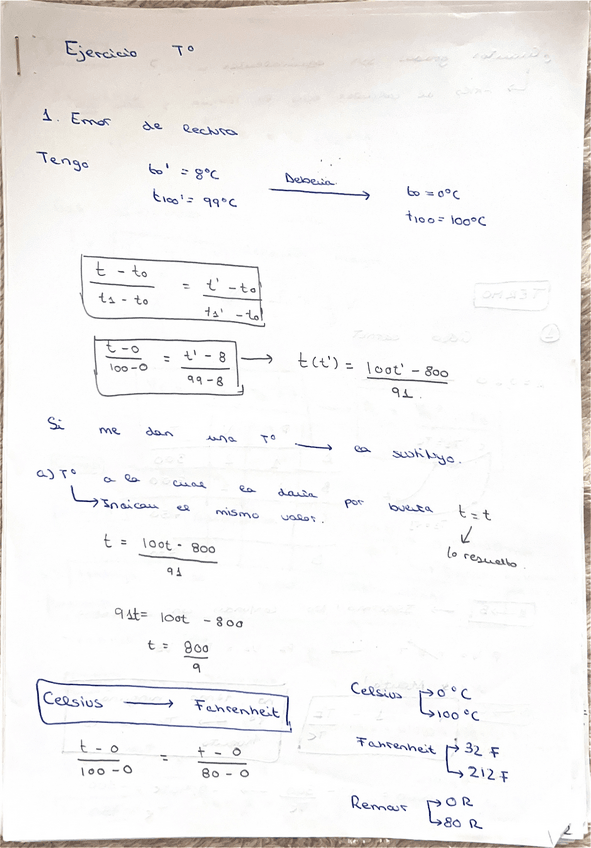 Ejercicio Tº
1. Error de lectura
Tengo to' = 8ºC Debería → to = 0ºC
t100' = 99ºC t100 = 100ºC
(t - to)/(t1 - to) = (t' - to)/(t1' - to)
(t - 0)/(100 - 0) = (t' - 8)/(99 - 8) → t(t') = (100t' - 800)/91.
Si me dan una Tº → la sustituyo.
a) Tº a la cual la daría por buena t = t
↳ Indican el mismo valor. ↓ lo resuelto.
t = (100t - 800)/91
91t = 100t - 800
t = 800/9
Celsius → Fahrenheit
(t - 0)/(100 - 0) = (t - 0)/(80 - 0)
Celsius → 0 ºC
→ 100 ºC
Fahrenheit → 32 F
→ 212 F
Remour → 0 R
→ 80 R